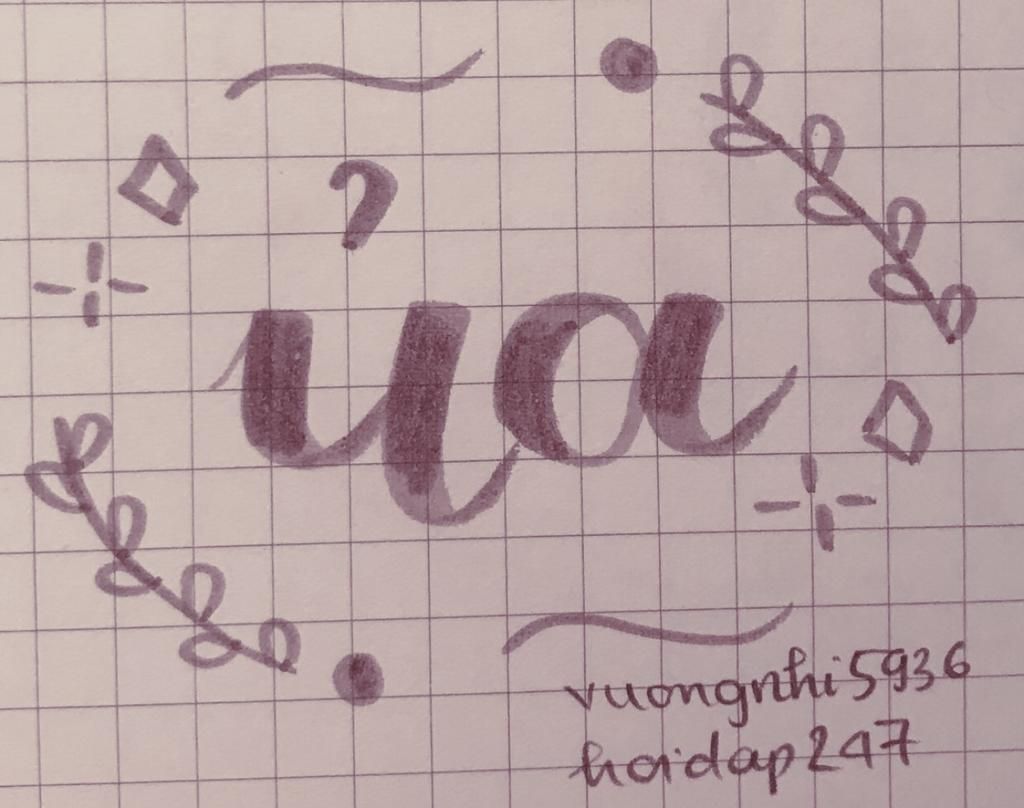 ủa
vuongnhi5936
hoidap247